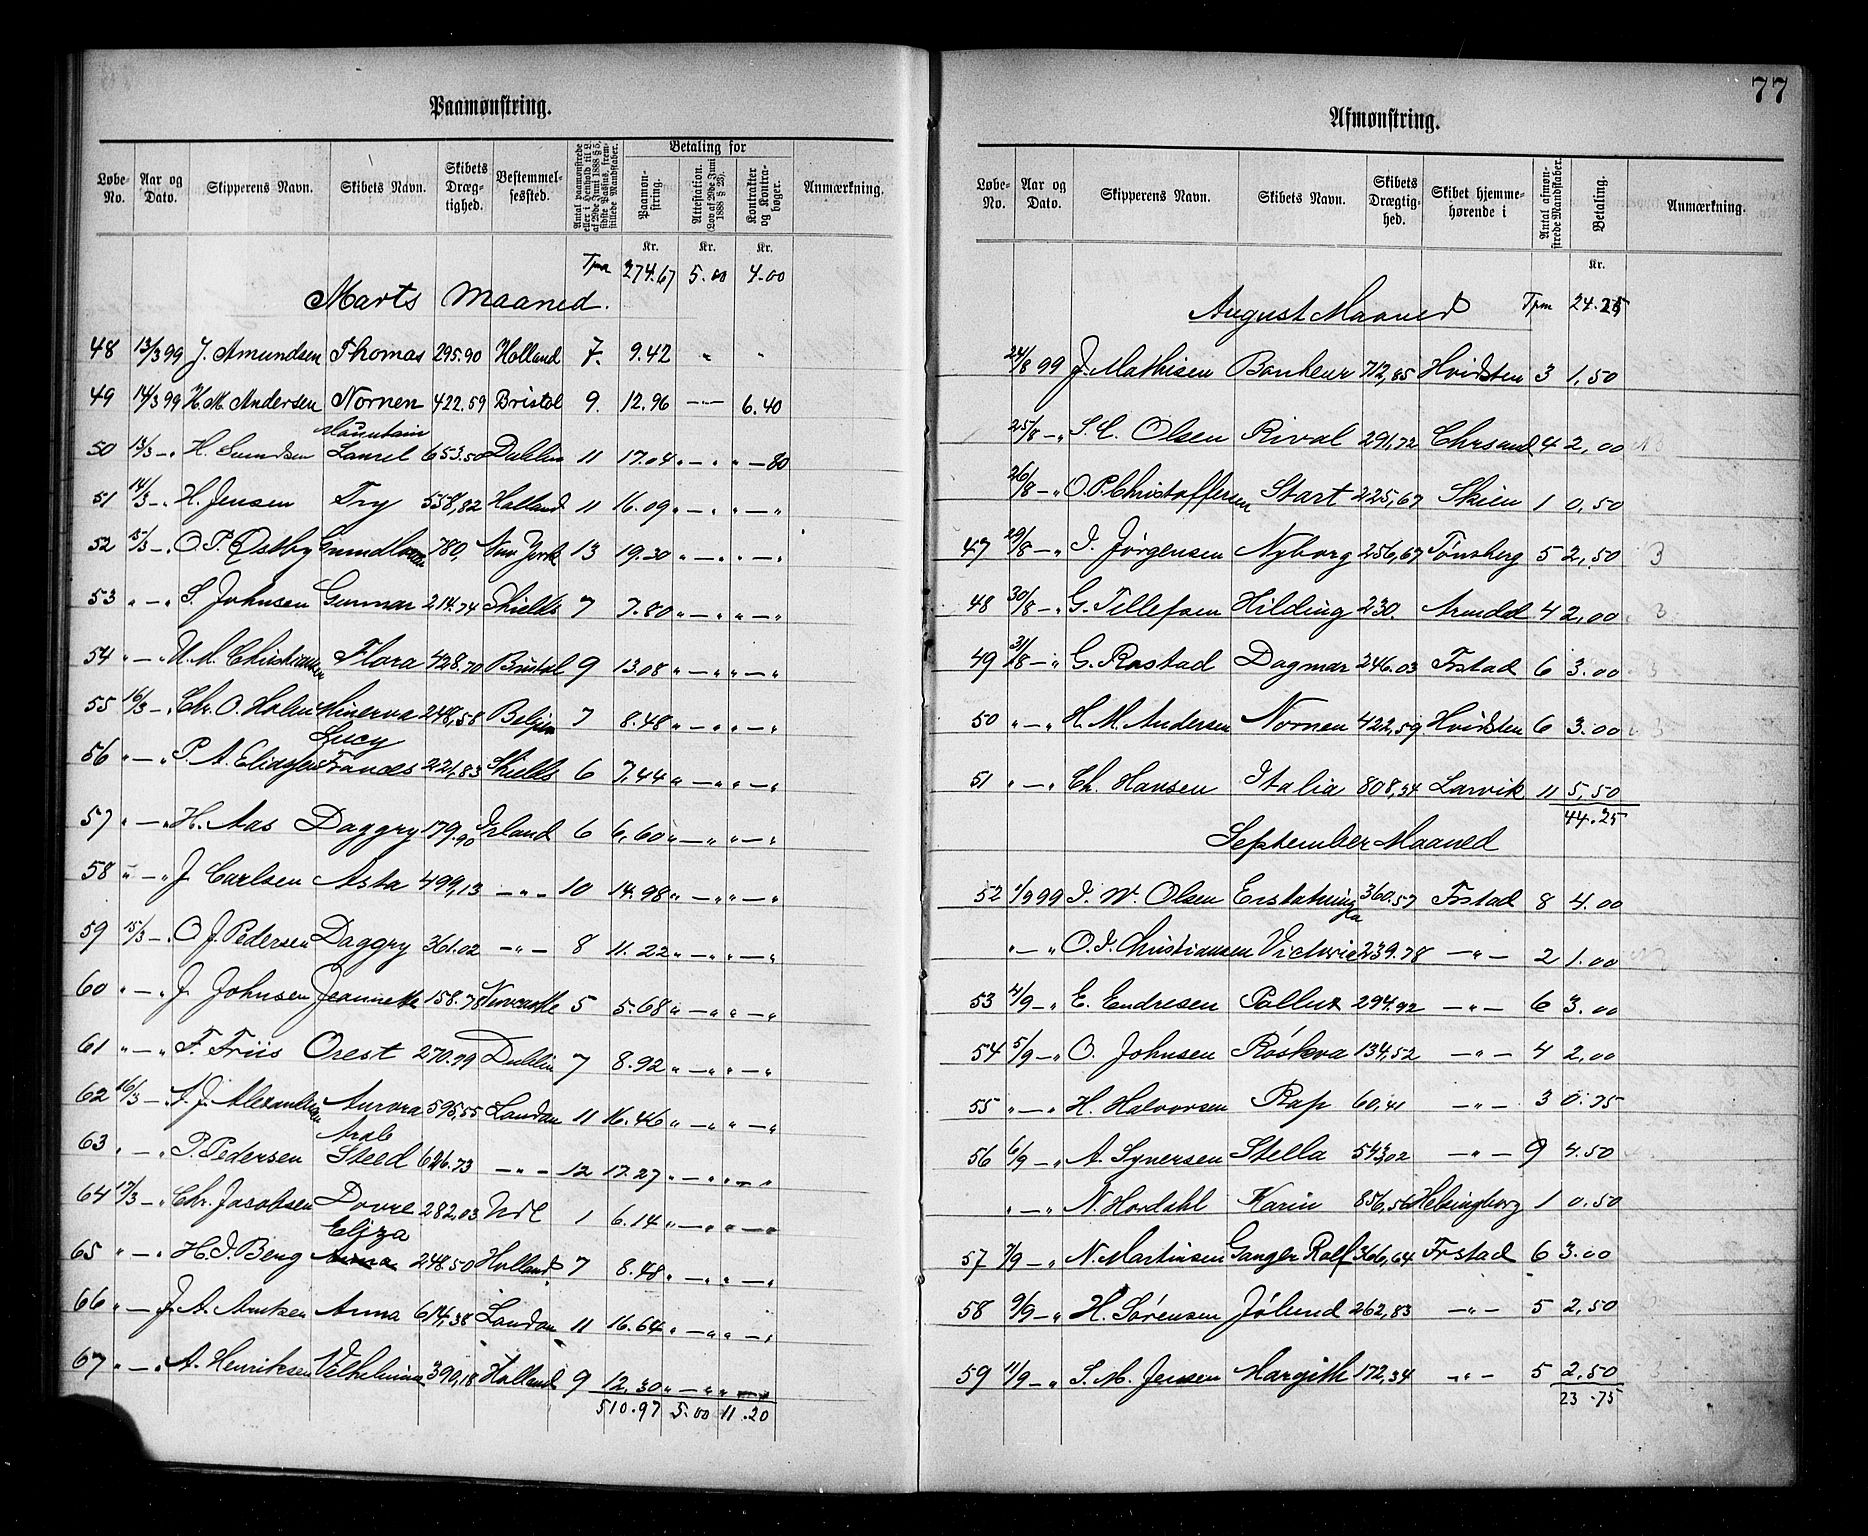 77
Paamønstring.
Løbe-No. | Aar og Dato. | Skipperens Navn. | Skibets Navn. | Skibets Dræg-tighed. | Bestemmel-sessted. | Betaling for | Paamøn-string. | Attestation. (Lov af 29de Juni 1888 § 23). | Kontrakter og Kontra-bøger. | Anmærkning.
Kr. Kr. Kr.
Tpm 274.67 5.00 4.00
Marts Maaned.
48 13/3 99 J. Amundsen Thomas 295.90 Holland 7. 9.42 " "
49 14/3 99 H. M. Andersen Nornen 422.59 Bristol 9. 12.96 — 6.40
50 13/3 - " H. Mountain Laurel 653.50 Dublin 11 17.04 " - " " - 80
51 14/3 - " H. Jensen Try 558,82 Holland 11 16.09 " - " " - "
52 15/3 - " O. P. Østby 780, New York 13 19.30 " - " " - "
53 " - " S. Johnsen Gunnar 214.74 Shields 7 7.80 " - " " - "
54 " - " Christiansen Flora 428.70 Bristol 9 13.08 " - " " - "
55 16/3 - " Chr. O. Holm Minerva 248,58 Belgien 7 8.48 " - " " - "
56 " - " P. A. Eliassen Lucy Frances 221,83 Shields 6 7.44 " - " " - "
57 " - " H. Aas Daggry 179.90 Irland 6 6,60 " - " " - "
58 " - " J. Carlsen Asta 499,13 - " - 10 14.98 " - " " - "
59 15/3 - " O. J. Pedersen Daggry 361.02 - " - 8 11.22 " - " " - "
60 " - " J. Johnsen Jeannette 158.78 Newcastle 5 5.68 " - " " - "
61 " - " F. Friis Orest 270.99 Dublin 7 8.92 " - " " - "
62 16/3 - " A. J. Alexandersen Aurora 595,55 London 11 16.46 " - " " - "
63 " - " P. Pedersen Arab Steed 626.73 - " - 12 17.27 " - " " - "
64 17/3 - " Chr. Jacobsen Dovre 282,03 1 6.14 " - " " - "
65 " - " H. J. Berg Eliza Anna 248.50 Holland 7 8.48 " - " " - "
66 " - J. A. Arntzen Anna 614,38 London 11 16.64 " - " " - "
67 " - " A. Henriksen Vilhelmina 390,18 Holland 9 12.30 " - " " - "
510.97 5.00 11.20
Afmønstring.
Løbe-No. | Aar og Dato. | Skipperens Navn. | Skibets Navn. | Skibets Drægtig-hed. | Skibet hjemme-hørende i | Antal afmøn-strede Mandskaber. | Betaling. | Anmærkning.
Kr.
August Maaned Tpm 24.25
24/8 99 J. Mathisen Bonheur 712,85 Hvidsten 3 1,50
25/8 - " S. C. Olsen Rival 291,72 Chrsand 4 2,00
26/8 - " O. P. Christoffersen Start 225,67 Skien 1 0,50
47 29/8 - " J. Jørgensen Nyborg 256,67 Tönsberg 5 2,50 3
48 30/8 - " G. Tellefsen Hilding 230. Arendal 4 2,00 3
49 31/8 - " G. Rostad Dagmar 246.03 Frstad 6 3.00 3
50 " - " H. M. Andersen Nornen 422,59 Hvidsten 6 3.00 3
51 " - " Ch. Hansen Italia 808,34 Larvik 11 5,50
44.25
September Maaned
52 1/9 99 J. W. Olsen Erstatning 360.57 Frstad 8 4.00
" - " O. J. Christiansen Victoria 239.78 - " - 2 1.00
53 4/9 - " E. Endresen Pollux 294.92 - " - 6 3.00
54 5/9 - " O. Johnsen Röskva 134,52 - " - 4 2,00
55 " - " H. Halvorsen Rap 60,41 - " - 3 0.75
56 6/9 - " A. Synersen Stella 543,02 - " - 9 4.50
" - " N. Hordahl Karin 856,56 Helsingborg 1 0.50
57 7/9 - " N. Martinsen Ganger Rolf 366,64 Frstad 6 3.00
58 9/9 - " H. Sørensen Jølund 262,83 - " - 5 2,50
59 11/9 - " S. M. Jensen Margith 172,34 - " - 5 2.50 3
23.75